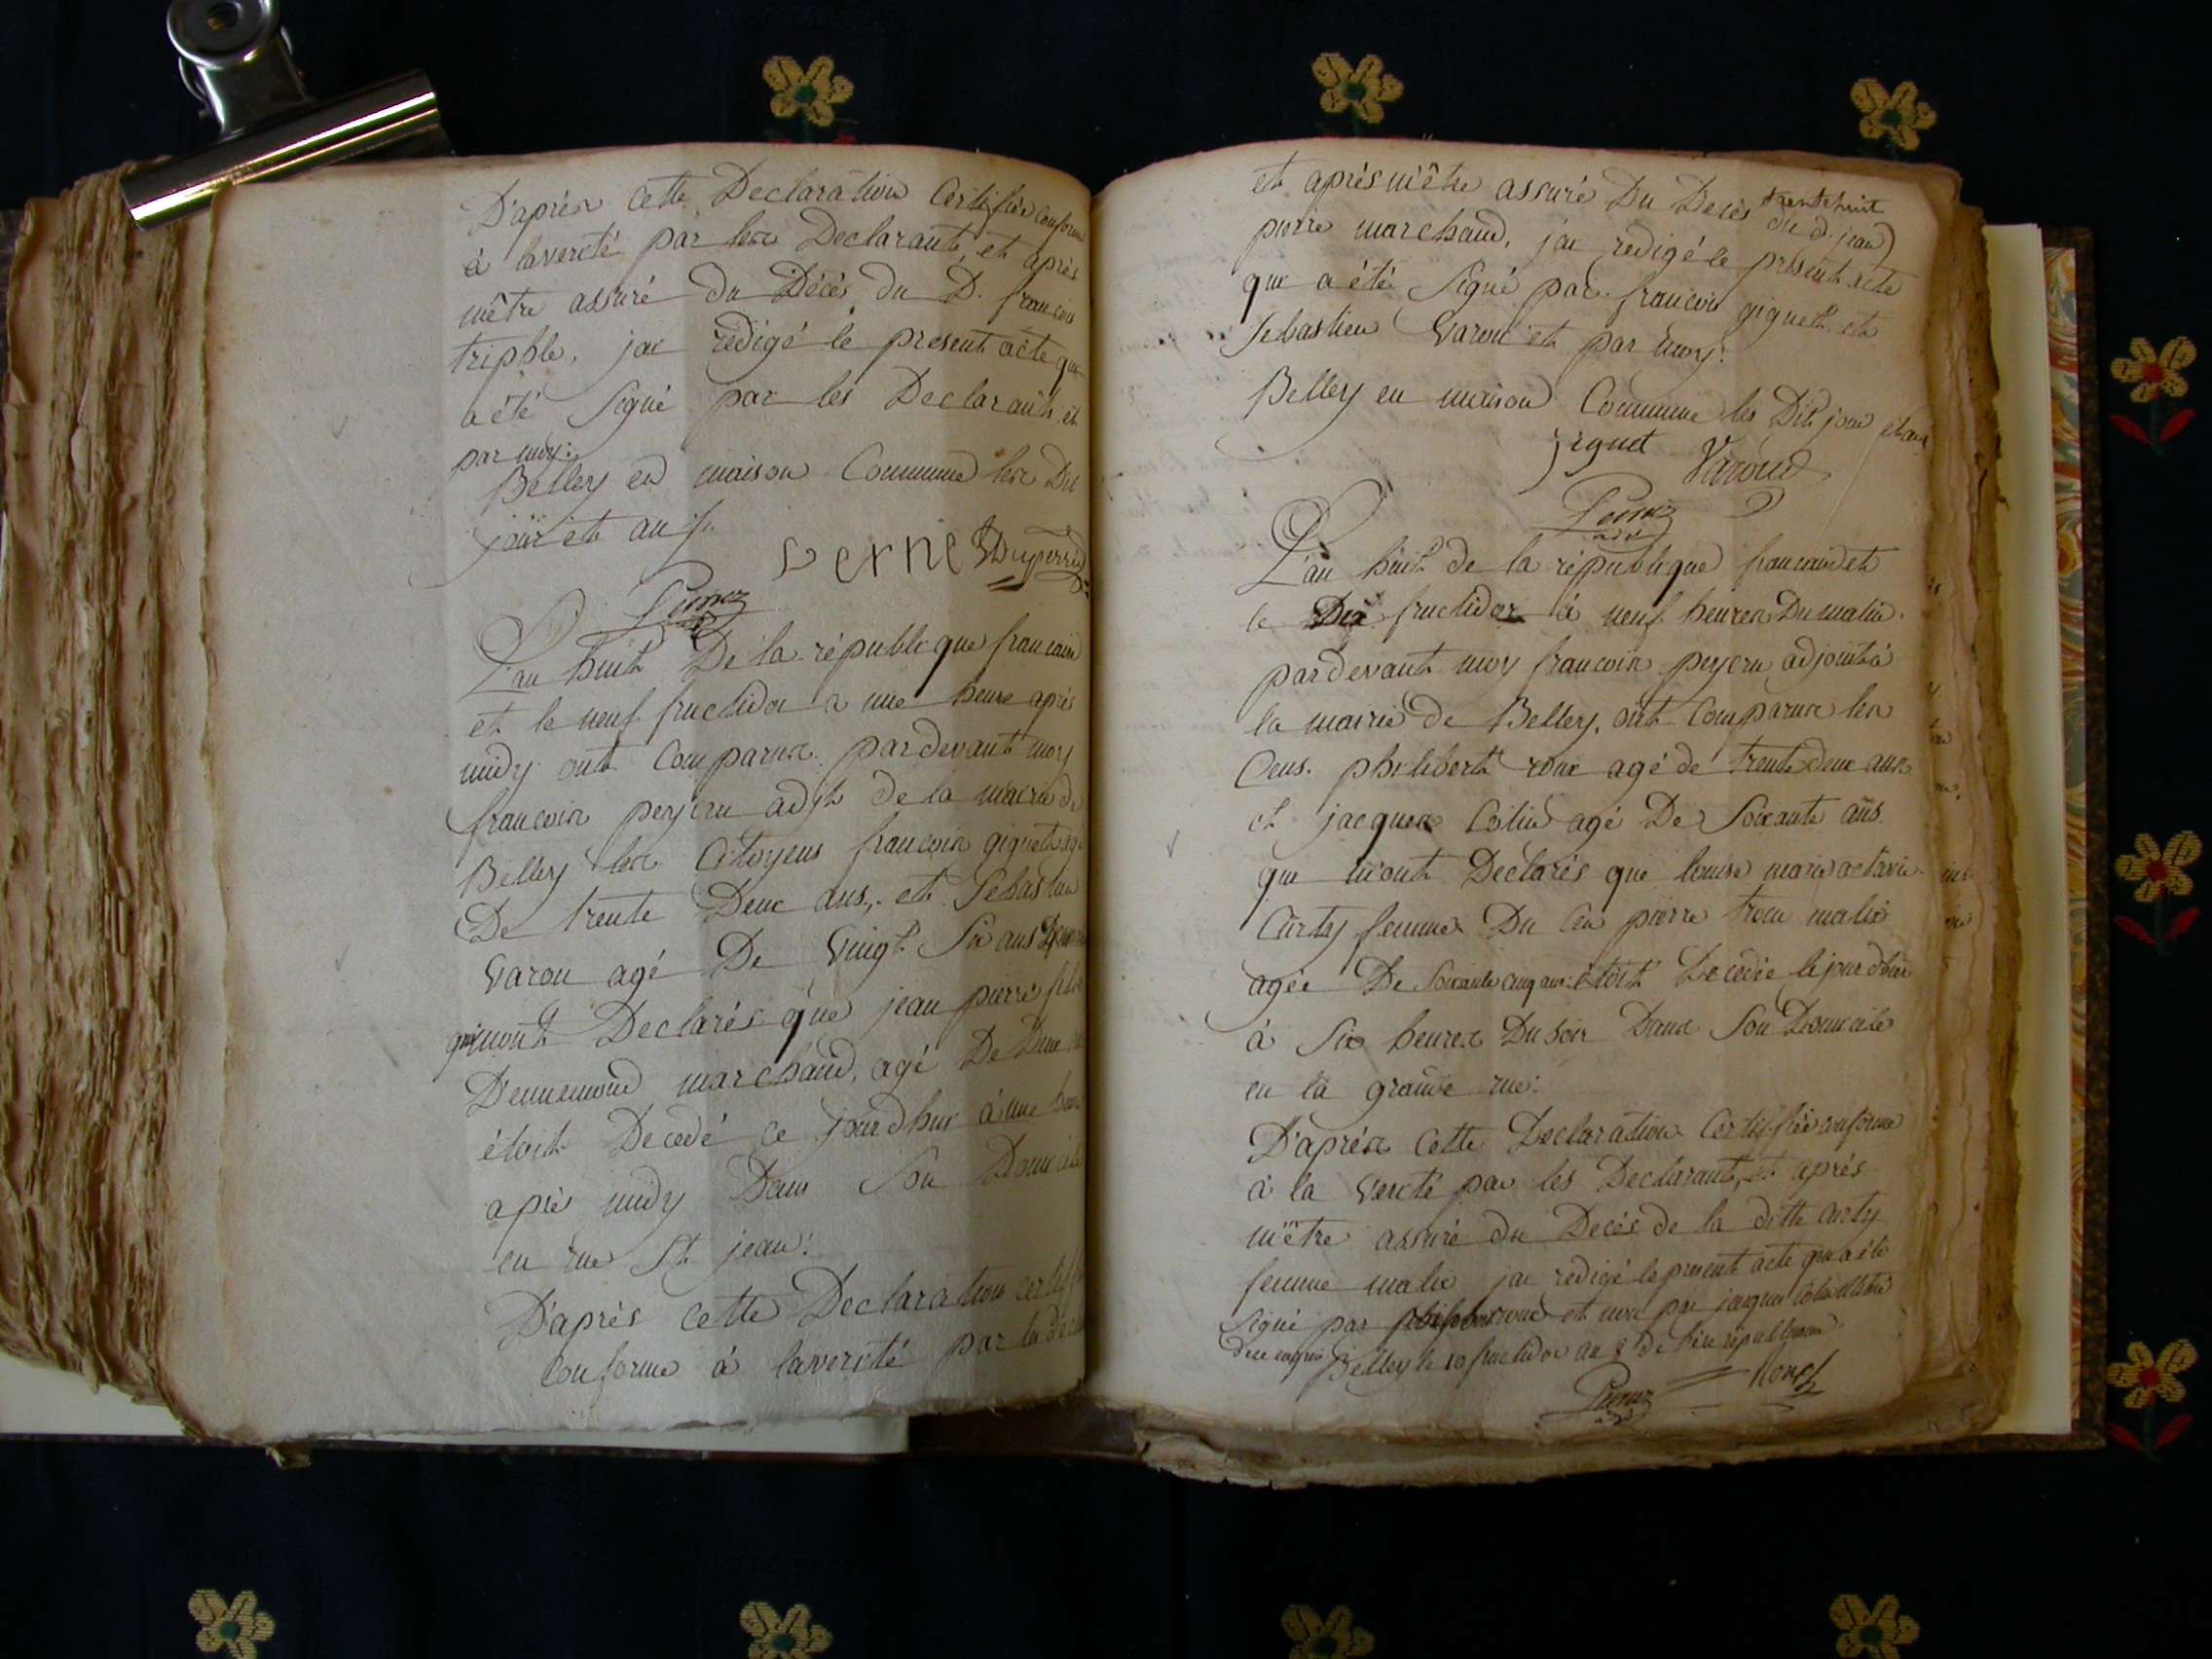 D'après cette Declaration Certifiée conforme
à laverité par les Declarants, et après
mêtre assuré du Décés du D. francois
tripple, jai redigé le present acte qui
a été Signé par les Declarants et
par moy:
Belley en maison Commune les Dit
jour et an
verne Duperré
L'an huit De la république francaise
et le neuf fructidor a une heure après
midy ont Comparus pardevant moy
francois peyseru adjt de la mairie de
Belley les Citoyens francois giguet agé
De trente Deux ans, et Sebastien
Varon agé De Vingt Six ans
qui mont Declarés que jean pierre fils
D'ennemond marchand, agé De Deux
étoit Decedé ce jourdhui à une heure
après midy Dans Son Domicile
en rue St jean:
D'après cette Declaration certiffiée
Conforme à laverité par les
trentehuit
et après m'être assuré Du Decès du d. jean
pierre marchand, jai redigé le présent acte
qui a été Signé par francois giguet et
Sebastien Varon et par moy:
Belley en maison Commune les Dit jour et an
jiguet Varoud
L'an huit de la république francaise et
le Dix fructidor à neuf heures Du matin
pardevant moy francois peyseru adjoint à
la mairie de Belley, ont Comparus les
Cens. philibert roux agé de trente deux ans
et jacques Colin agé De Soixante ans
qui m'ont Declarés que louise marie octavie
Curty femme Du Cen pierre malix
agée De Soixante cinq ans étoit Decedée le jour d'hier
à Six heures Du Soir Dans Son Domicile
en la grande rue:
D'après cette Declaration Certiffiée conforme
à la Verité par les Declarants, et après
m'être assuré du Decès de la ditte curty
femme malix jai redigé le present acte qui a été
Signé par et non par jacques Colin illitéré
de ce enquis Belley le 10 fructidor an 8 De l'ère republicaine